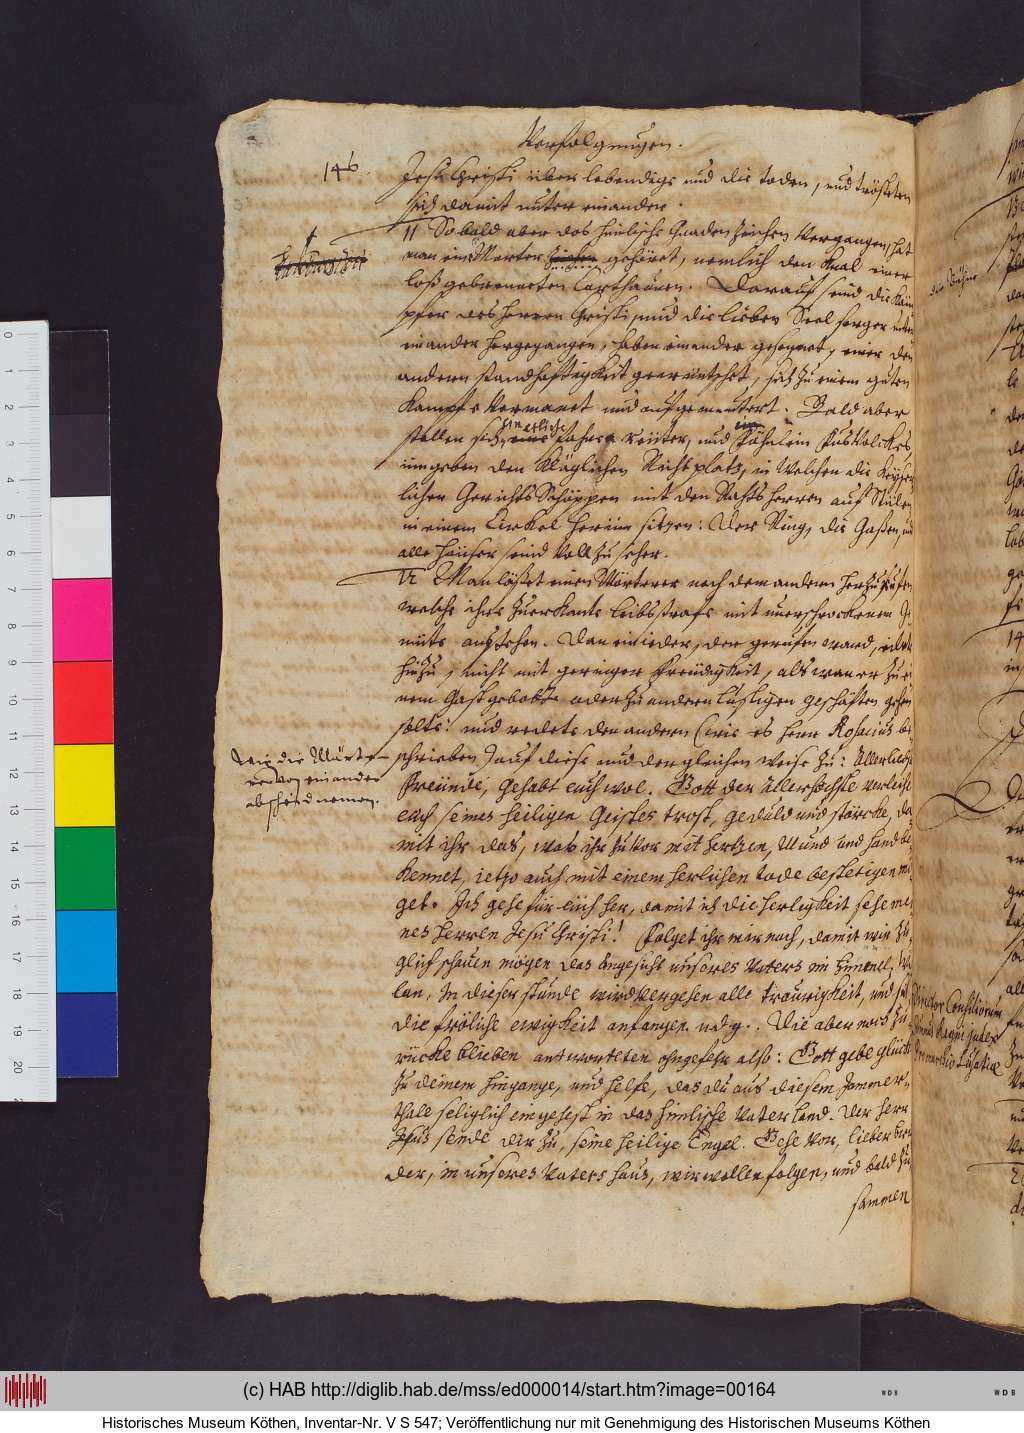 Verfolgungen.
146.
Jesu Christi uber lebendige und die toden, und trösteten
sich damit unter einander.
11 Sobald aber das himlische Gnaden Zeichen Vergangen, hat
man eins Marter gehöret, nemlich den knal einer
loß gebrenneten Carthaunen. Darauf seind die Kem
pfer des Herren Christi, und die lieben Seel sorger unter
einander hergegangen, haben einander gesegnet, einer den
andern standhaftigkeit gewüntschet, sich zu einem guten
Kampfe Vermanet und aufgemuntert. Bald aber
stellen sich, etliche reüter, und ein Fähnlein Fus Volckes
umgeben den kläglichen Richtplatz, in welchen die Keyser
lichen Gerichts Schöppen mit den Rahts herren auf Stülen
in einem Cirkel herum sitzen: Der Ring, die Gaßen, und
alle heuser seind Voll zu seher.
12 Man läßet einen Märterer nach dem andern herzu rufen
welche ihre zuerkante leibsstrafe mit unerschrockenem Ge
müte außstehen. Dan ein ieder, der gerufen ward, eilete
hinzu, nicht mit geringer Freudigkeit, als wan er zu ei
nem Gastgebohte oder zu andern lustigen geschäften gehen
solte: und redete den andern (wie es herr Rosacius be
schrieben) auf diese und dergleichen weise zu: Allerliebste
wie die Märte-
rer von einander
abscheid nemen.
Freunde, gehabt euch wol. Gott der Allerhöchste verleihe
euch seines heiligen Geistes trost, geduld und stärcke, da
mit ihr das, was ihr zuvor mit hertzen, Mund und hand be
kennet, ietzo auch mit einem herlichen tode bestetigen mö
get. Ich gehe für euch her, damit ich die herligkeit sehe mei
nes herren Jesu Christi! Folget ihr mir nach, damit wir zu
gleich schauen mögen das Angesicht unseres Vaters im himmel,
lan, In dieser stunde wird vergesen alle traurigkeit, und
die fröliche ewigkeit anfangen. udg.. Die aber noch zu
rücke blieben antworteten ohngefehr also: Gott gebe glück
zu deinem hingange, und helfe, das du aus diesem Jammer-
thale seliglich eingehest in das himlische Vaterland. Der herr
Jesus sende dir zu, seine heilige Engel. Gehe vor, lieber bru
der, in unseres Vaters haus, wir wollen folgen, und bald zu
sammen
(c) HAB http://diglib.hab.de/mss/ed000014/start.htm?image=00164
Historisches Museum Köthen, Inventar-Nr. V S 547; Veröffentlichung nur mit Genehmigung des Historischen Museums Köthen